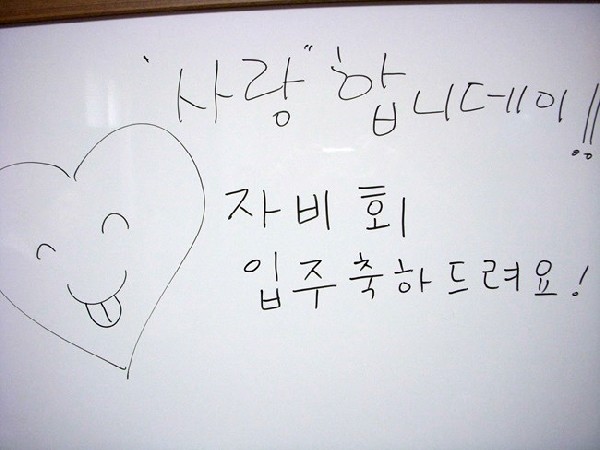 "사랑"합니데이!!
자비회
입주축하드려요!